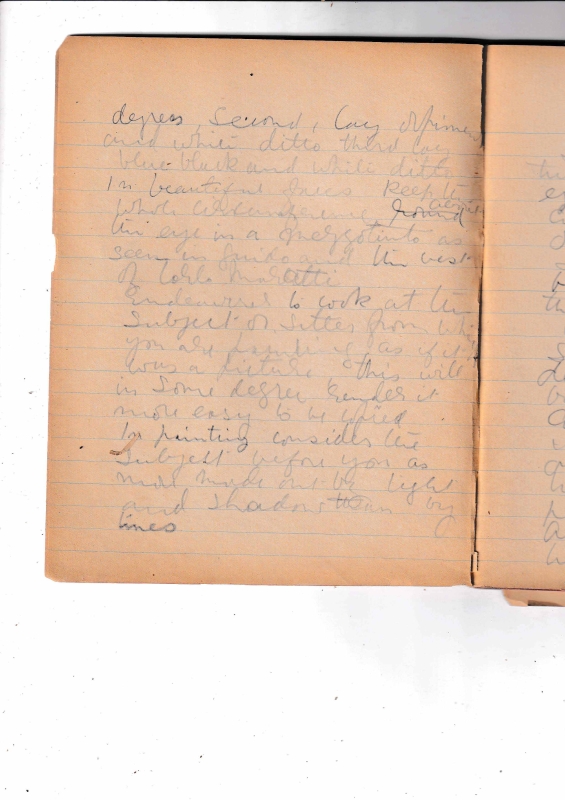 degrees, Second, Lay Opiment
and white ditto third lay
blue black and white ditto
In beautiful faces keep the
whole circumference about
round
the eye in a mezzotinto as
seen in Guido and the best
of Carlo Maratti
Endeavour to look at the
Subject or Sitter from which
you are painting, as if it
was a picture this will
in Some degree render it
more easy to be copied
In painting consider the
Subject before you as
more made out by light
and shadow than by
lines